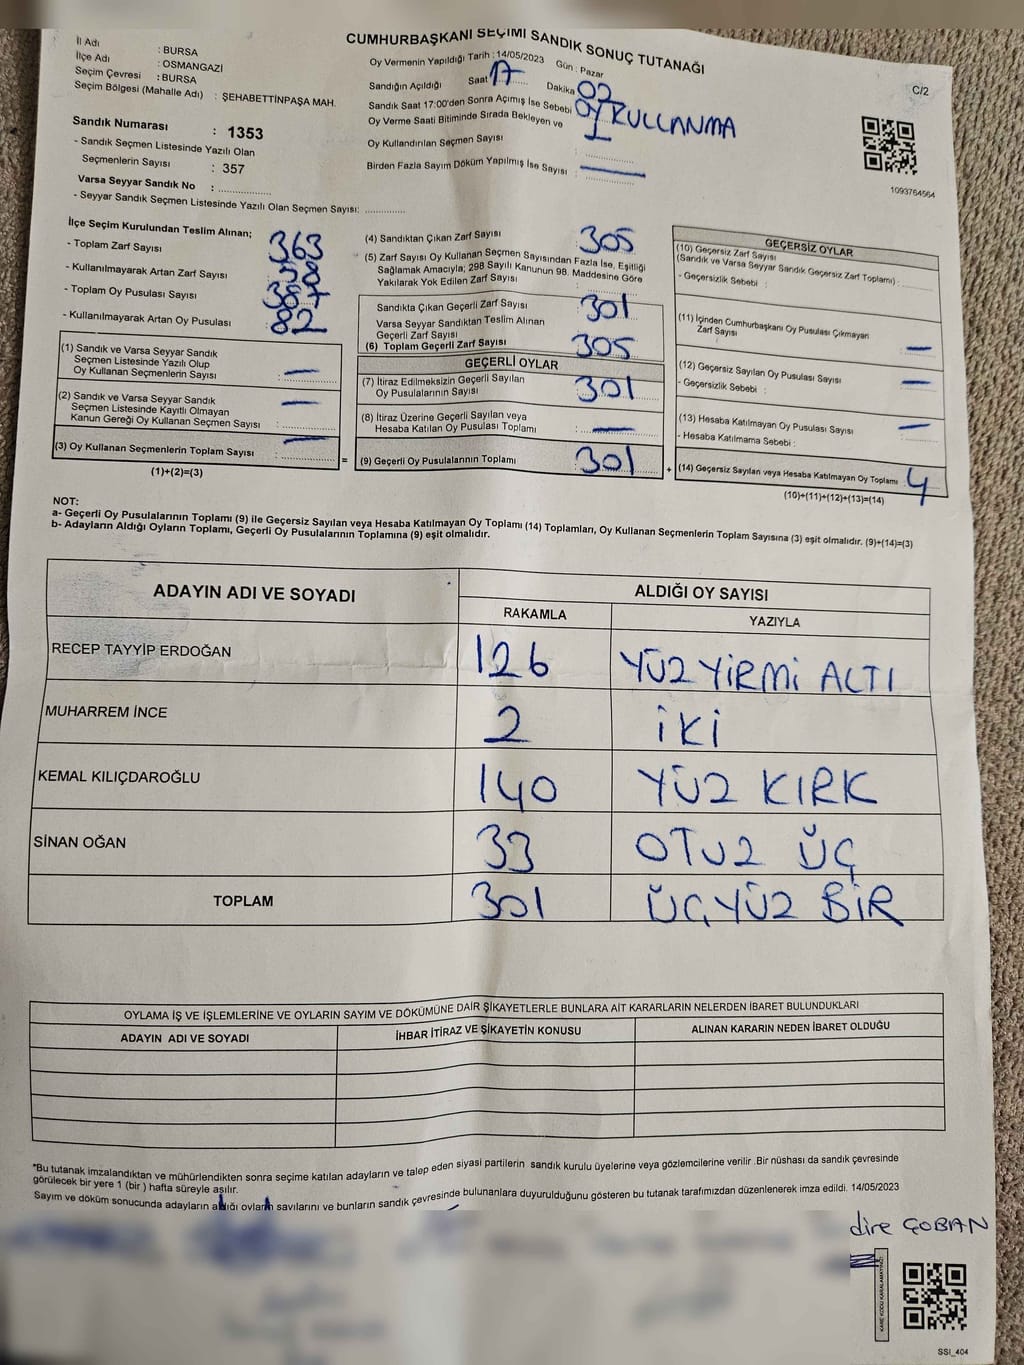 CUMHURBAŞKANI SEÇİMİ SANDIK SONUÇ TUTANAĞI
C/2
İl Adı : BURSA
İlçe Adı : OSMANGAZİ
Seçim Çevresi : BURSA
Seçim Bölgesi (Mahalle Adı) : ŞEHABETTİNPAŞA MAH.
Sandık Numarası : 1353
- Sandık Seçmen Listesinde Yazılı Olan
Seçmenlerin Sayısı : 357
Varsa Seyyar Sandık No :
- Seyyar Sandık Seçmen Listesinde Yazılı Olan Seçmen Sayısı:
Oy Vermenin Yapıldığı Tarih : 14/05/2023 Gün : Pazar
Sandığın Açıldığı Saat 17 Dakika 02
Sandık Saat 17:00'den Sonra Açımış İse Sebebi OY KULLANMA
Oy Verme Saati Bitiminde Sırada Bekleyen ve
Oy Kullandırılan Seçmen Sayısı : 1
Birden Fazla Sayım Döküm Yapılmış İse Sayısı : —
1093764564
İlçe Seçim Kurulundan Teslim Alınan;
- Toplam Zarf Sayısı 363
- Kullanılmayarak Artan Zarf Sayısı : 58
- Toplam Oy Pusulası Sayısı : 387
- Kullanılmayarak Artan Oy Pusulası : 82
(1) Sandık ve Varsa Seyyar Sandık
Seçmen Listesinde Yazılı Olup
Oy Kullanan Seçmenlerin Sayısı : —
(2) Sandık ve Varsa Seyyar Sandık
Seçmen Listesinde Kayıtlı Olmayan
Kanun Gereği Oy Kullanan Seçmen Sayısı : —
(3) Oy Kullanan Seçmenlerin Toplam Sayısı : —
(1)+(2)=(3)
=
(4) Sandıktan Çıkan Zarf Sayısı 305
(5) Zarf Sayısı Oy Kullanan Seçmen Sayısından Fazla İse, Eşitliği
Sağlamak Amacıyla; 298 Sayılı Kanunun 98. Maddesine Göre
Yakılarak Yok Edilen Zarf Sayısı :
Sandıkta Çıkan Geçerli Zarf Sayısı 301
Varsa Seyyar Sandıktan Teslim Alınan
Geçerli Zarf Sayısı :
(6) Toplam Geçerli Zarf Sayısı 305
GEÇERLİ OYLAR
(7) İtiraz Edilmeksizin Geçerli Sayılan
Oy Pusulalarının Sayısı : 301
(8) İtiraz Üzerine Geçerli Sayılan veya
Hesaba Katılan Oy Pusulası Toplamı : —
(9) Geçerli Oy Pusulalarının Toplamı 301
+
GEÇERSİZ OYLAR
(10) Geçersiz Zarf Sayısı
(Sandık ve Varsa Seyyar Sandık Geçersiz Zarf Toplamı) :
- Geçersizlik Sebebi :
(11) İçinden Cumhurbaşkanı Oy Pusulası Çıkmayan
Zarf Sayısı : —
(12) Geçersiz Sayılan Oy Pusulası Sayısı : —
- Geçersizlik Sebebi :
(13) Hesaba Katılmayan Oy Pusulası Sayısı : —
- Hesaba Katılmama Sebebi :
(14) Geçersiz Sayılan veya Hesaba Katılmayan Oy Toplamı : 4
(10)+(11)+(12)+(13)=(14)
NOT:
a- Geçerli Oy Pusulalarının Toplamı (9) ile Geçersiz Sayılan veya Hesaba Katılmayan Oy Toplamı (14) Toplamları, Oy Kullanan Seçmenlerin Toplam Sayısına (3) eşit olmalıdır. (9)+(14)=(3)
b- Adayların Aldığı Oyların Toplamı, Geçerli Oy Pusulalarının Toplamına (9) eşit olmalıdır.
ADAYIN ADI VE SOYADI ALDIĞI OY SAYISI
RAKAMLA YAZIYLA
RECEP TAYYİP ERDOĞAN 126 YÜZ YİRMİ ALTI
MUHARREM İNCE 2 İKİ
KEMAL KILIÇDAROĞLU 140 YÜZ KIRK
SİNAN OĞAN 33 OTUZ ÜÇ
TOPLAM 301 ÜÇYÜZ BİR
OYLAMA İŞ VE İŞLEMLERİNE VE OYLARIN SAYIM VE DÖKÜMÜNE DAİR ŞİKAYETLERLE BUNLARA AİT KARARLARIN NELERDEN İBARET BULUNDUKLARI
ADAYIN ADI VE SOYADI İHBAR İTİRAZ VE ŞİKAYETİN KONUSU ALINAN KARARIN NEDEN İBARET OLDUĞU
*Bu tutanak imzalandıktan ve mühürlendikten sonra seçime katılan adayların ve talep eden siyasi partilerin sandık kurulu üyelerine veya gözlemcilerine verilir .Bir nüshası da sandık çevresinde
görülecek bir yere 1 (bir ) hafta süreyle asılır.
Sayım ve döküm sonucunda adayların aldığı oyların sayılarını ve bunların sandık çevresinde bulunanlara duyurulduğunu gösteren bu tutanak tarafımızdan düzenlenerek imza edildi. 14/05/2023
dire ÇOBAN
KARE KODU KARALAMAYINIZ!
SSİ_404